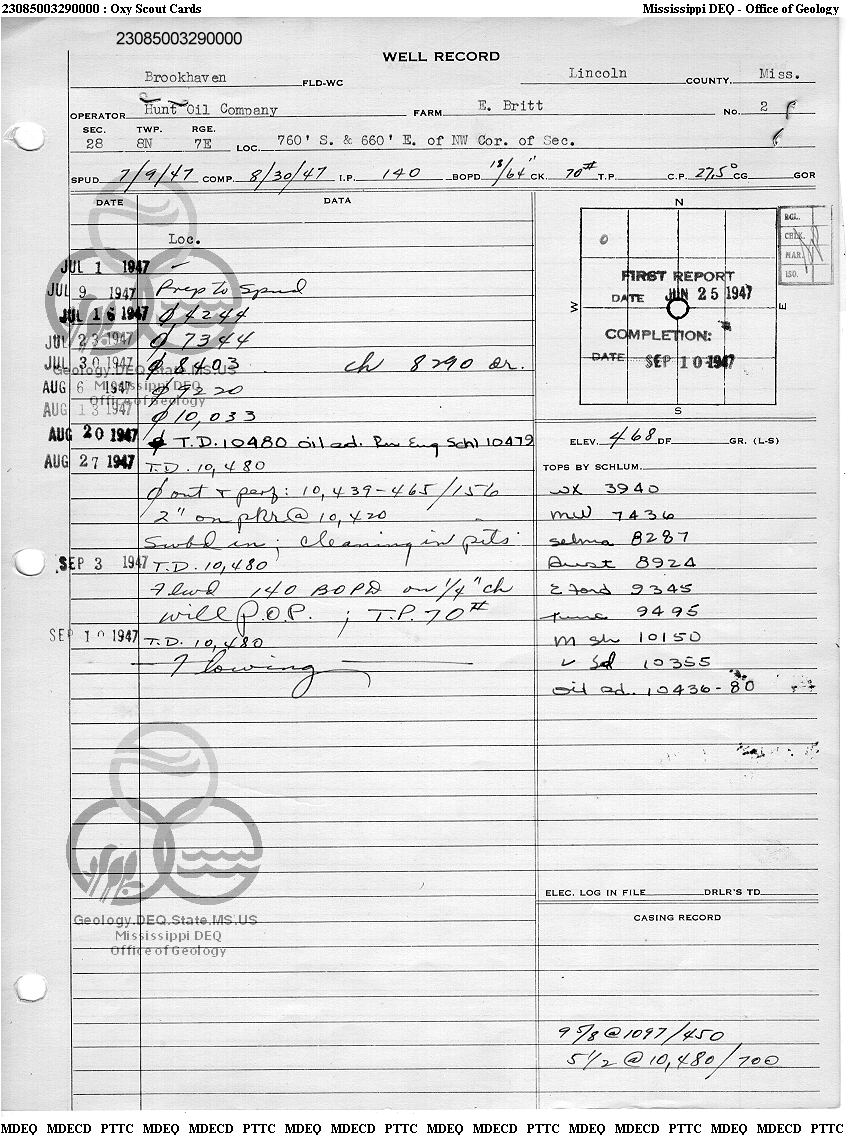 23085003290000 : Oxy Scout Cards
Mississippi DEQ - Office of Geology
23085003290000
WELL RECORD
Brookhaven FLD-WC Lincoln COUNTY, Miss.
OPERATOR Hunt Oil Company FARM E. Britt No. 2
SEC. TWP. RGE.
28 8N 7E LOC. 760' S. & 660' E. of NW Cor. of Sec.
SPUD 7/9/47 COMP. 8/30/47 I.P. 140 BOPD 18/64" CK. 70# T.P. C.P. 27.5° CG GOR
DATE DATA
Loc.
JUL 1 1947 -
JUL 9 1947 Prep to Spud
JUL 16 1947 ø 4244
JUL 23 1947 ø 7344
JUL 30 1947 ø 8403 ch 8290 or.
AUG 6 1947 ø 9220
AUG 13 1947 ø 10,033
AUG 20 1947 ø T.D. 10480 oil sd. Run Eng Schl 10479
AUG 27 1947 T.D. 10,480
ø out & perf: 10,439-465/156
2" on pkr @ 10,420
Swbd in; cleaning in pits
SEP 3 1947 T.D. 10,480
Flwd 140 BOPD on 1/4" ch
will P.O.P. ; T.P. 70#
SEP 10 1947 T.D. 10,480
- Flowing -
N
W
E
S
RGL.
CHEK.
MAR.
ISO.
FIRST REPORT
DATE JUN 25 1947
COMPLETION:
DATE SEP 10 1947
ELEV. 468 DF GR. (L-S)
TOPS BY SCHLUM.
WX 3940
MW 7436
Selma 8287
Aust 8924
E Ford 9345
Tusc 9495
M sh 10150
L Sd 10355
Oil sd. 10436-80
ELEC. LOG IN FILE DRLR'S TD
CASING RECORD
9 5/8 @ 1097/450
5 1/2 @ 10,480/700
Geology.DEQ.State.MS.US
Mississippi DEQ
Office of Geology
Geology.DEQ.State.MS.US
Mississippi DEQ
Office of Geology
MDEQ MDECD PTTC MDEQ MDECD PTTC MDEQ MDECD PTTC MDEQ MDECD PTTC MDEQ MDECD PTTC MDEQ MDECD PTTC